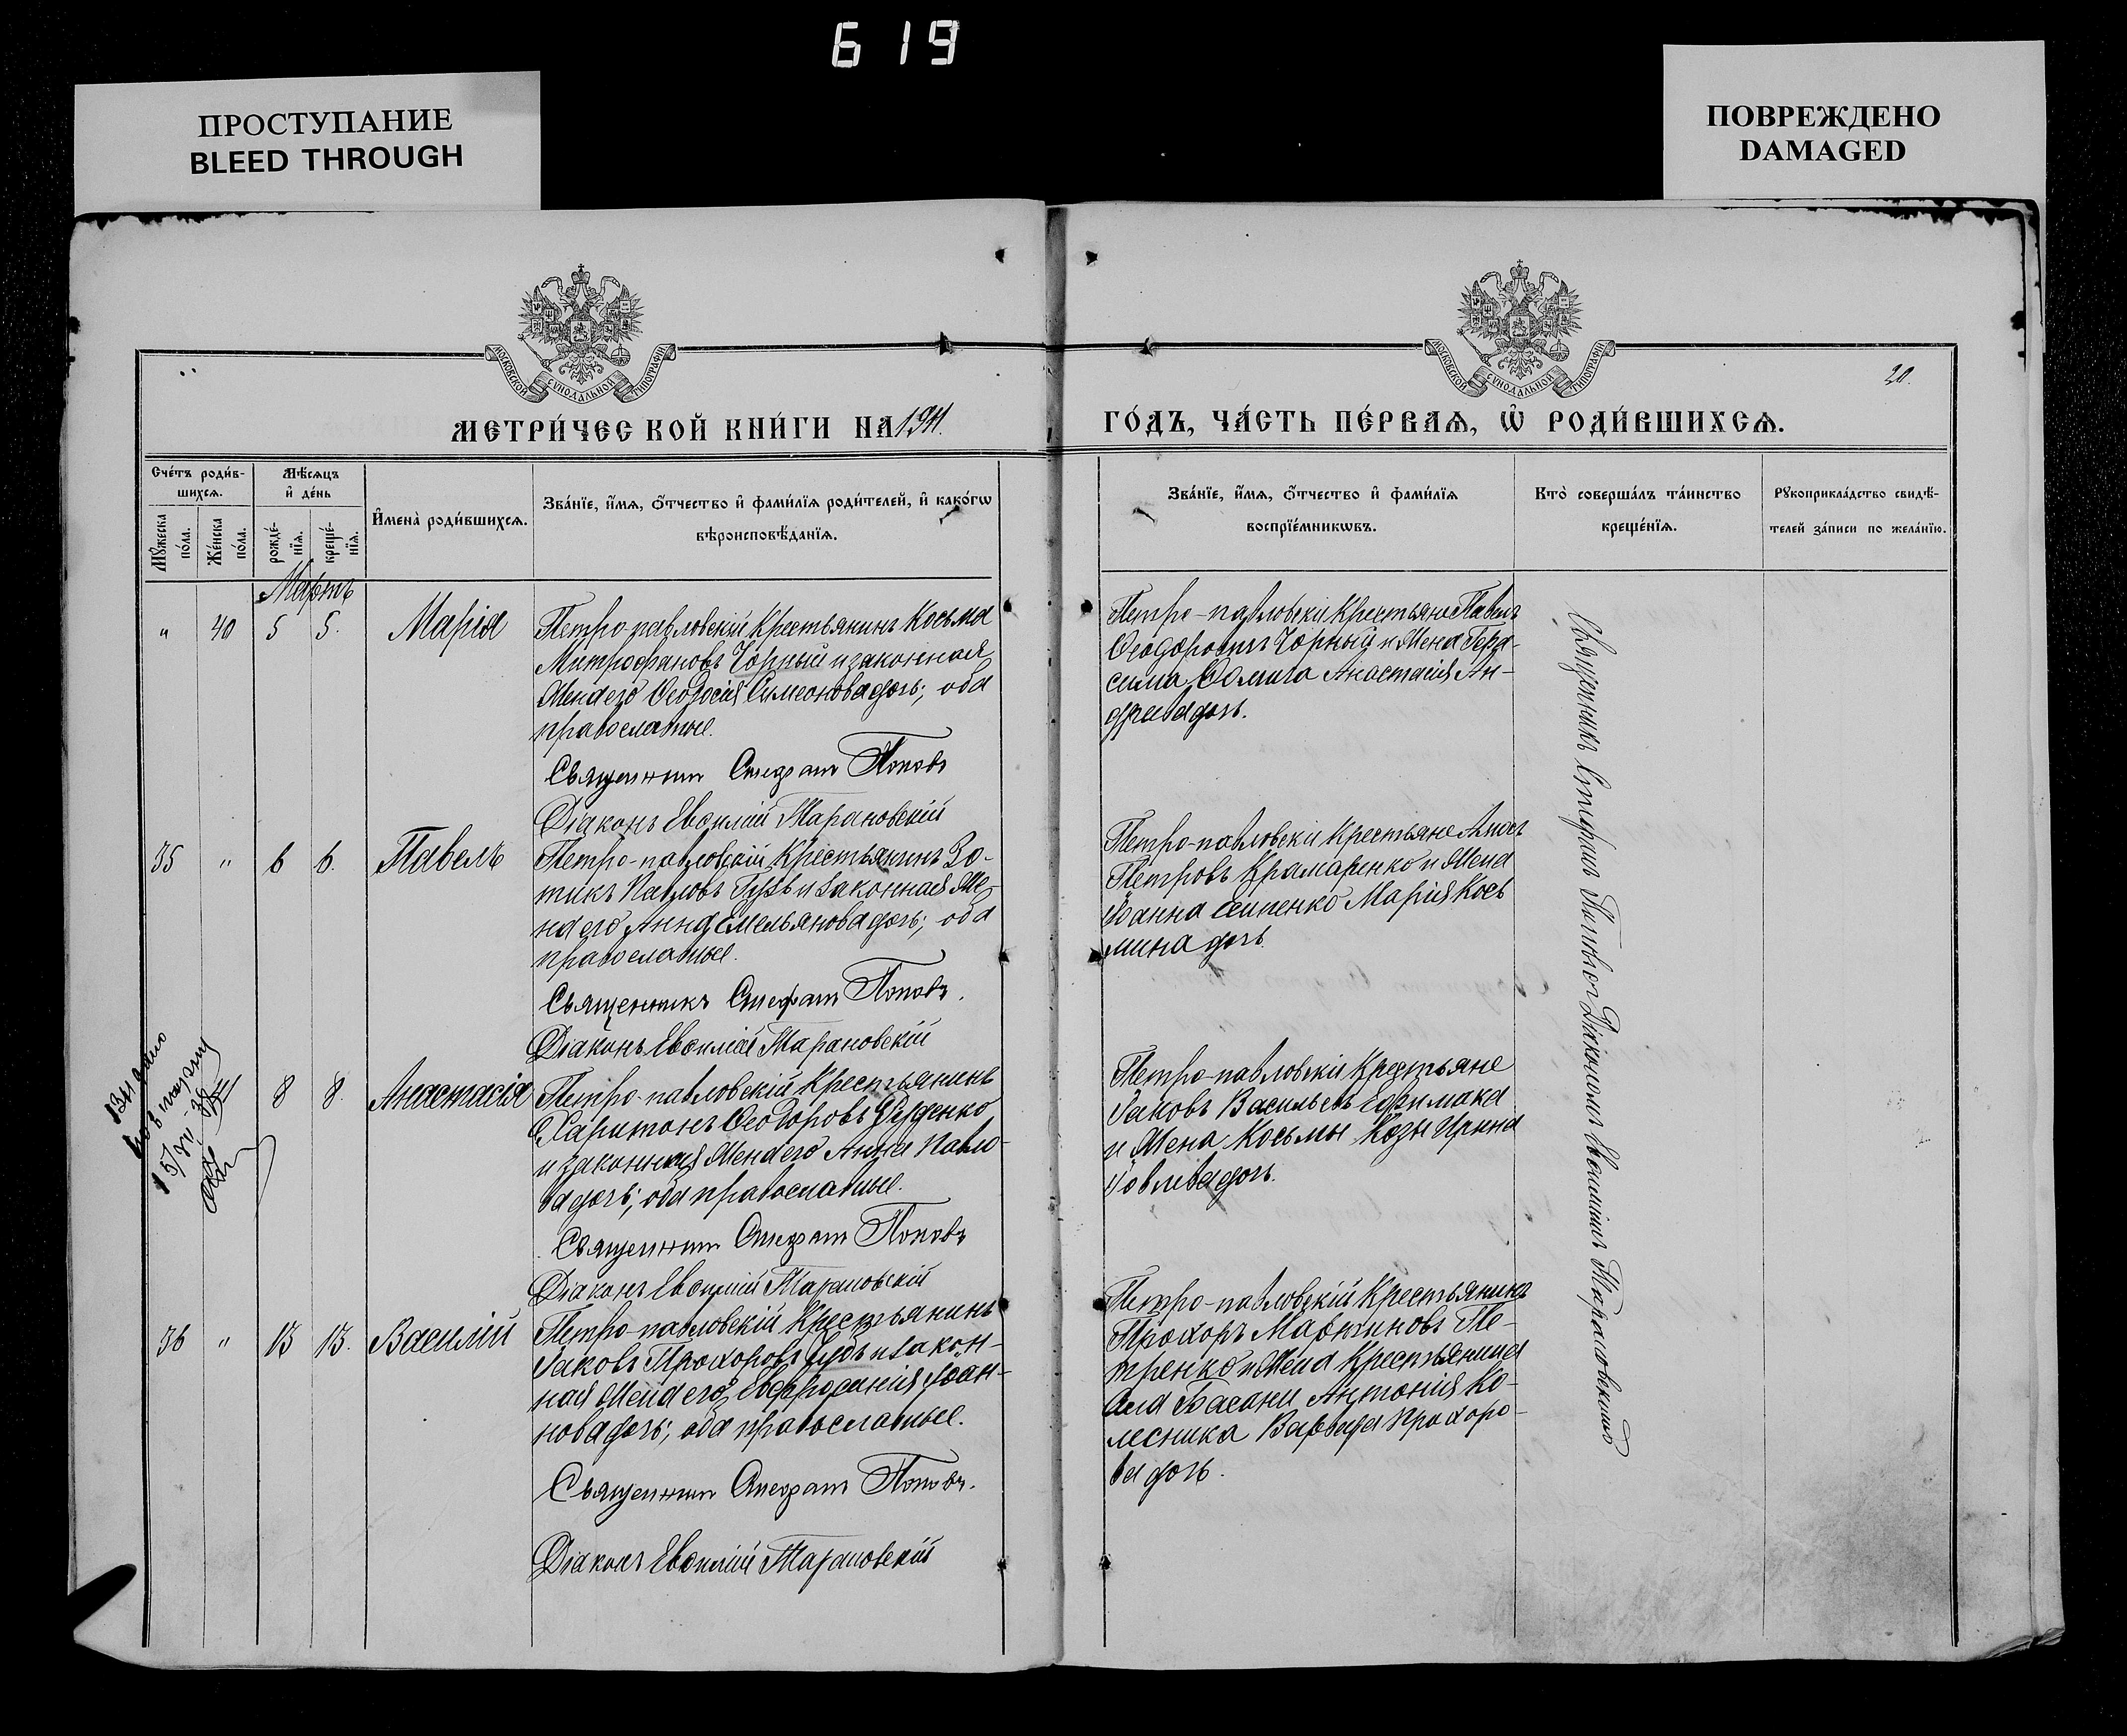 619
ПРОСТУПАНИЕ
BLEED THROUGH
ПОВРЕЖДЕНО
DAMAGED
МОСКОВСКОЙ СѴНОДАЛЬНОЙ ТИПОГРАФІИ
МОСКОВСКОЙ СѴНОДАЛЬНОЙ ТИПОГРАФІИ
20.
МЕТРИ́ЧЕСКОЙ КНИ́ГИ НА 1911.
ГО́ДЪ, ЧА́СТЬ ПЕ́РВАѦ, Ѿ РОДИ́ВШИХСѦ.
Сче́тъ роди́в-
шихсѧ.
Мѣ́сѧцъ
и҆ де́нь
Мꙋ́жеска
по́ла.
Же́нска
по́ла.
рожде́-
нїѧ.
креще́-
нїѧ.
И҆мена̀ роди́вшихсѧ.
Зва́нїе, и҆́мѧ, о҆́тчество и҆ фами́лїѧ роди́телей, и҆ како́гѡ
вѣроисповѣ́данїѧ.
Зва́нїе, и҆́мѧ, о҆́тчество и҆ фами́лїѧ
воспрїе́мникѡвъ.
Кто̀ соверша́лъ та́инство
креще́нїѧ.
Рꙋкоприкла́дство свидѣ́-
телей за́писи по жела́нїю.
Мартъ
" 40 5 5. Марія
Петро-павловскій Крестьянинъ Косьма
Митрофановъ Чорный и законная
Жена его Ѳеодосія Симеонова дочь; оба
православные.
Священникъ Стефанъ Поповъ
Діаконъ Евѳимій Тарановскій
Петро-павловскіе Крестьяне Павелъ
Ѳеодоровичъ Чорный и Жена Гера-
сима Анастасія Ан-
дреева дочь.
35 " 6 6. Павелъ
Петро-павловскій Крестьянинъ Зо-
тикъ Павловъ Гузь и законная Же-
на его Анна Емельянова дочь; оба
православные.
Священникъ Стефанъ Поповъ.
Діаконъ Евѳимій Тарановскій
Петро-павловскіе Крестьяне
Петровъ Крамаренко и Жена
Іоанна Осипенко Марія Косъ
мина дочь.
Выдано
8 8. Анастасія
Петро-павловскій Крестьянинъ
Харитонъ Ѳеодоровъ
и законная Жена его Анна Павло-
ва дочь; оба православные.
Священникъ Стефанъ Поповъ
Діаконъ Евѳимій Тарановскій
Петро-павловскіе Крестьяне
Іаковъ Васильевъ
и Жена Косьмы Козы Ирина
Іовлева дочь.
36 " 13 13. Василій
Петро-павловскій Крестьянинъ
Іаковъ Прохоровъ и закон-
ная Жена его Евфросинія Іоан-
нова дочь; оба православные.
Священникъ Стефанъ Поповъ.
Діаконъ Евѳимій Тарановскій
Петро-павловскій Крестьянинъ
Прохоръ Мартиновъ Пе-
тренко и Жена Крестьянина
села Басани Антонія Ко-
лесника Варвара Прохоро-
ва дочь.
Священникъ Стефанъ Поповъ съ Діакономъ Евѳиміемъ Тарановскимъ